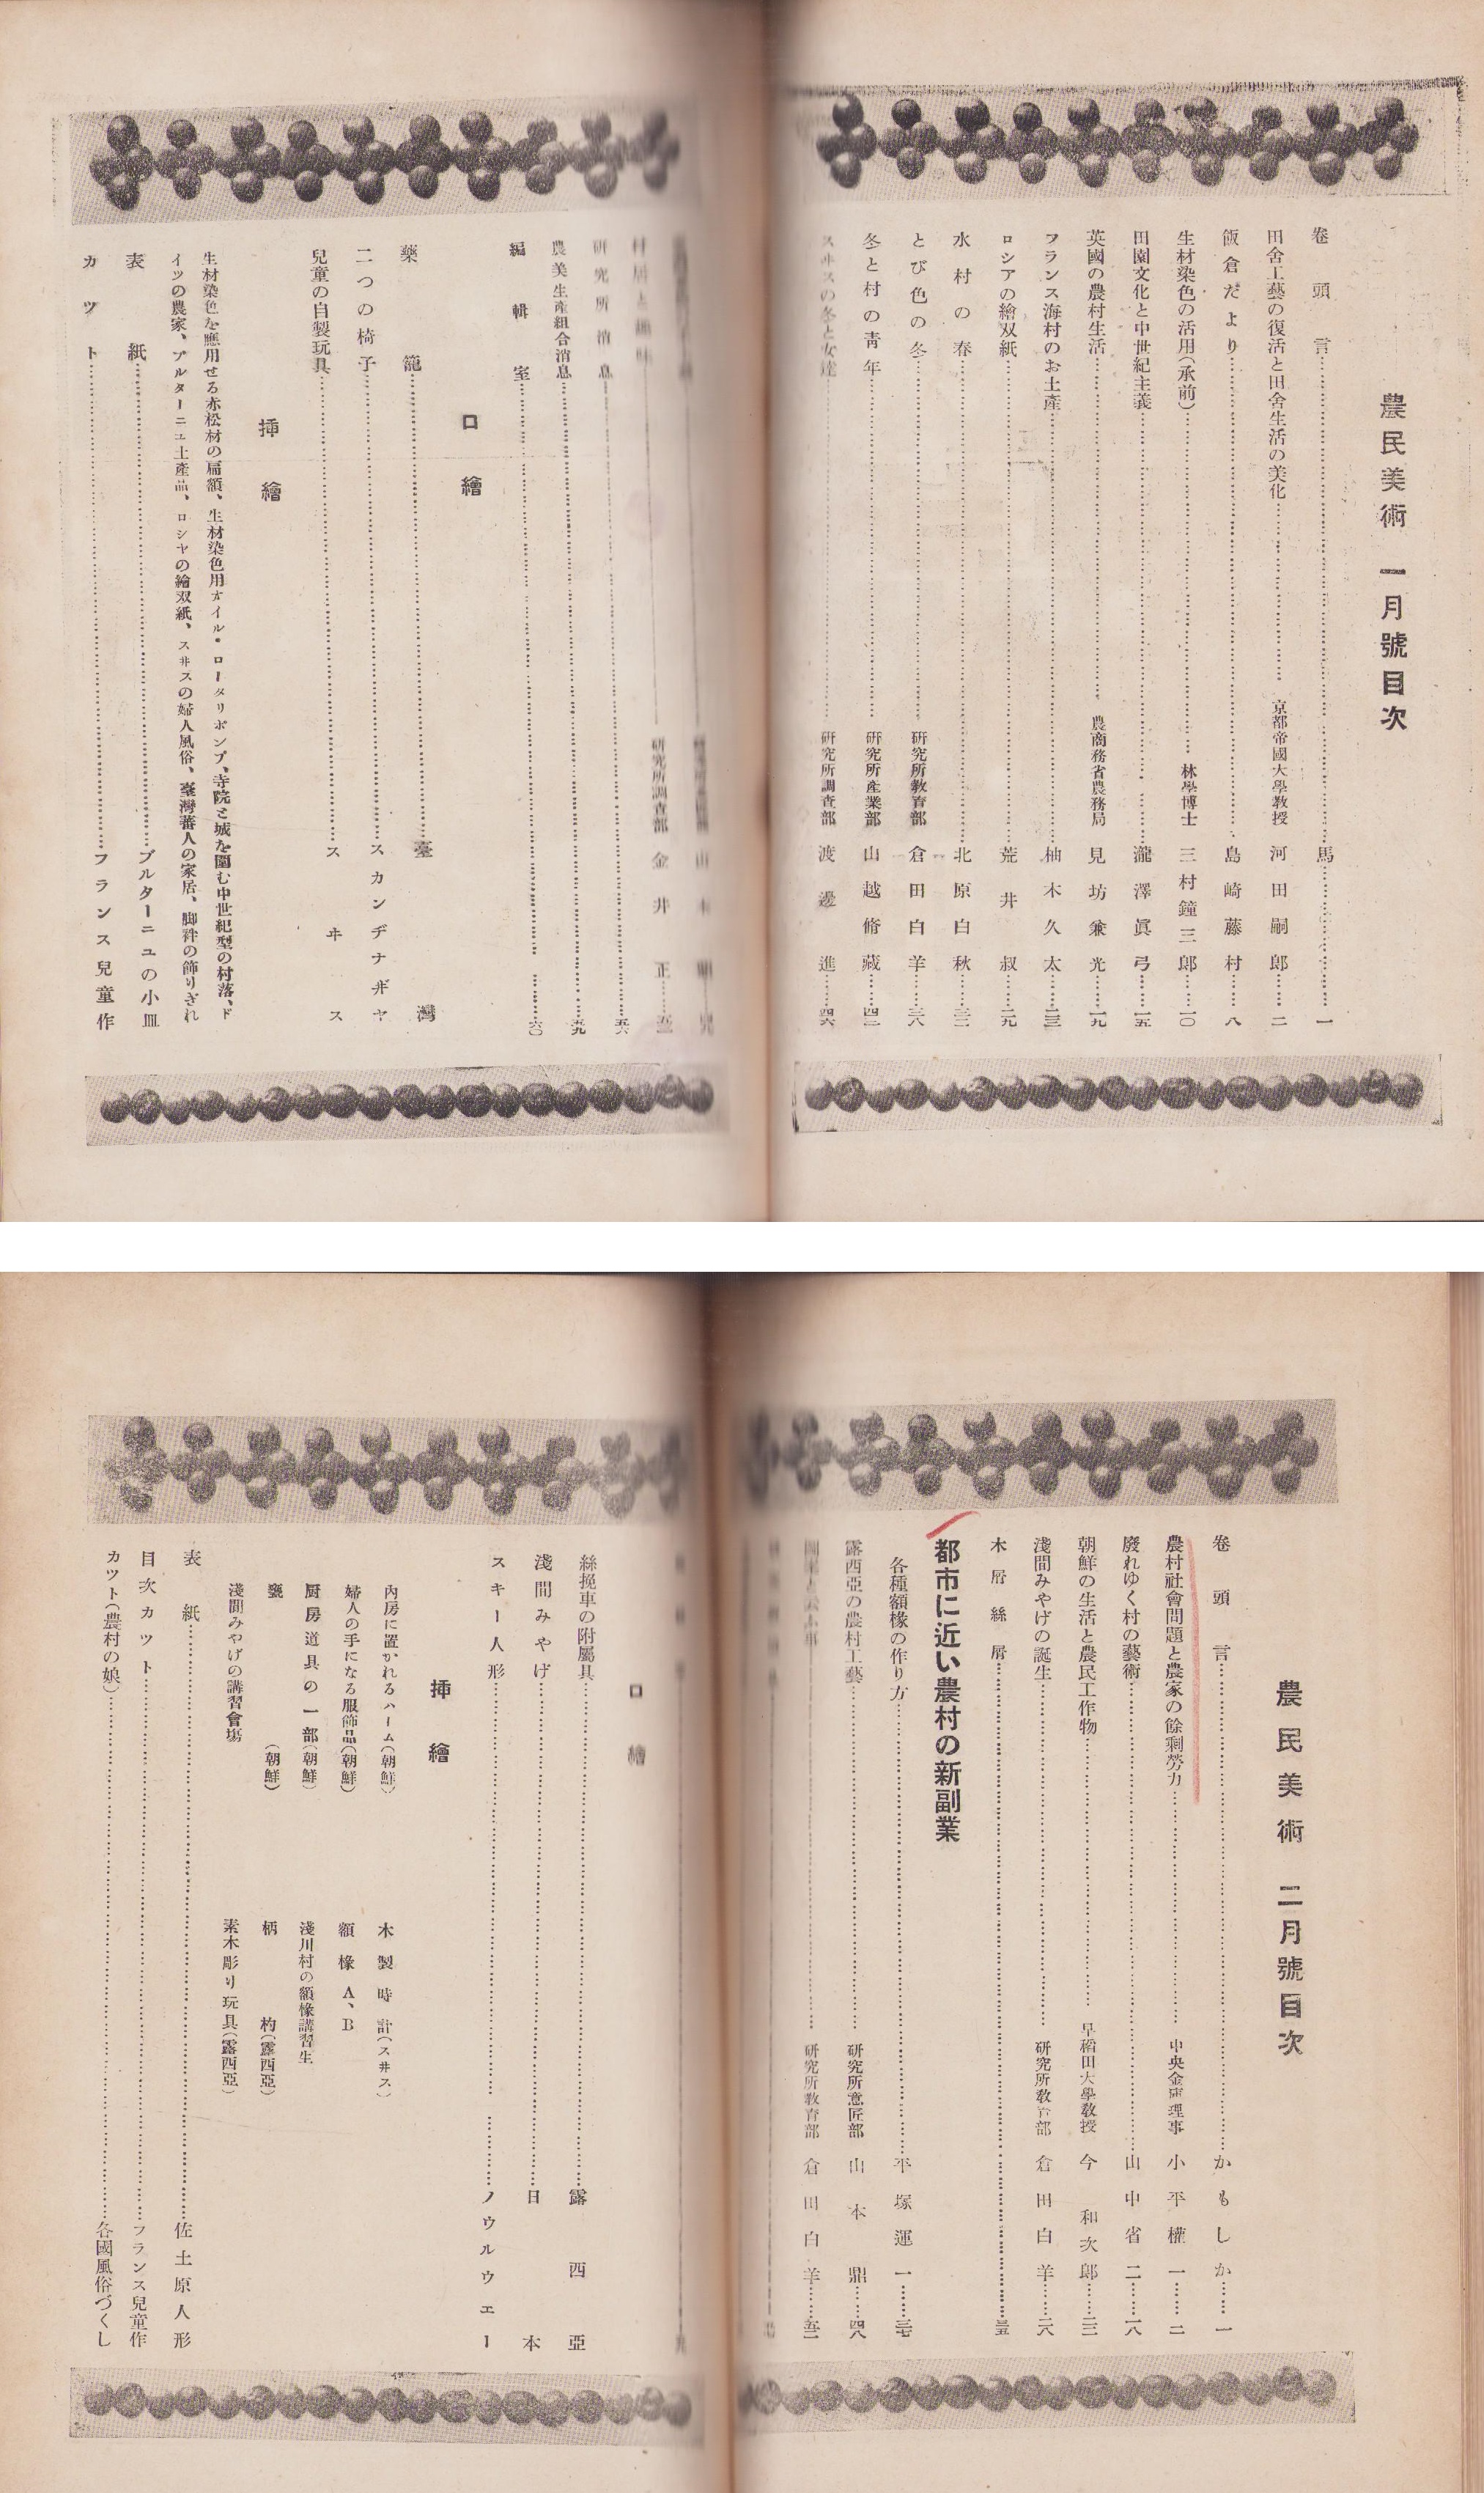 農民美術 一月號目次
卷頭言……馬……一
田舍工藝の復活と田舍生活の美化……京都帝國大學教授 河田嗣郎……二
飯倉だより……島崎藤村……八
生材染色の活用(承前)……林學博士 三村鐘三郎……一〇
田園文化と中世紀主義……瀧澤眞弓……一五
英國の農村生活……農商務省農務局 見坊兼光……一九
フランス海村のお土產……柚木久太……二三
ロシアの繪双紙……荒井叔……二九
水村の春……北原白秋……三二
とび色の冬……研究所教育部 倉田白羊……三八
冬と村の靑年……研究所產業部 山越脩藏……四二
スヰスの冬と女達……研究所調査部 渡邊進……四六
研究所調査部 金井正……五二
研究所消息……五六
農美生產組合消息……五九
編輯室……六〇
口繪
藥籠……臺灣
二つの椅子……スカンヂナヸヤ
兒童の自製玩具……スヰス
挿繪
生材染色を應用せる赤松材の扁額、生材染色用オイル・ロータリポンプ、寺院と城を圍む中世紀型の村落、ド
イツの農家、ブルターニュ土產品、ロシヤの繪双紙、スヰスの婦人風俗、臺灣蕃人の家居、脚袢の飾りぎれ
表紙……ブルターニュの小皿
カツト……フランス兒童作
農民美術 二月號目次
卷頭言……かもしか……一
農村社會問題と農家の餘剩勞力……中央金庫理事 小平權一……二
廢れゆく村の藝術……山中省二……一八
朝鮮の生活と農民工作物……早稻田大學敎授 今和次郎……二三
淺間みやげの誕生……研究所敎育部 倉田白羊……二八
木屑絲屑……三五
都市に近い農村の新副業
各種額椽の作り方……平塚運一……三七
露西亞の農村工藝……研究所意匠部 山本鼎……四八
研究所敎育部 倉田白羊……五二
口繪
絲挽車の附屬具……露西亞
淺間みやげ……日本
スキー人形……ノウルウエー
挿繪
內房に置かれるハーム(朝鮮) 木製時計(スヰス)
婦人の手になる服飾品(朝鮮) 額椽A、B
厨房道具の一部(朝鮮) 淺川村の額椽講習生
甕(朝鮮) 柄杓(露西亞)
淺間みやげの講習會塲 素木彫り玩具(露西亞)
表紙……佐土原人形
目次カツト……フランス兒童作
カツト(農村の娘)……各國風俗づくし